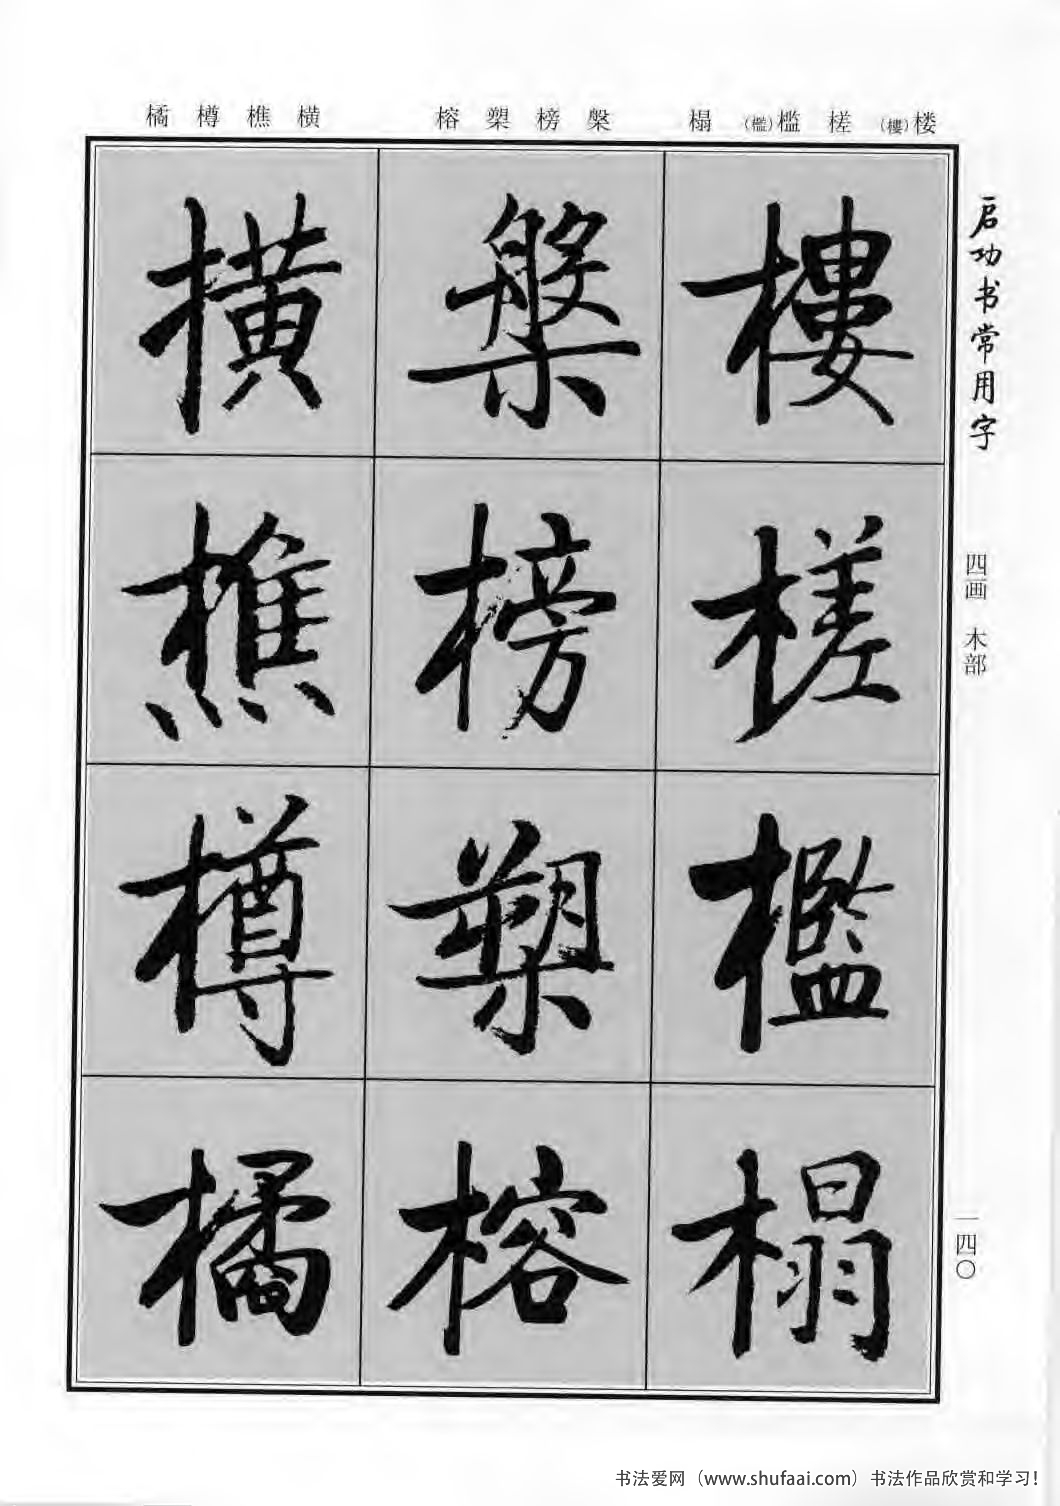 楼(樓) 槎 槛(檻) 榻
槃 榜 槊 榕
横 樵 樽 橘
启功书常用字
四画 木部
一四〇
樓槎檻榻
槃榜槊榕
横樵樽橘
书法爱网（www.shufaai.com）书法作品欣赏和学习！